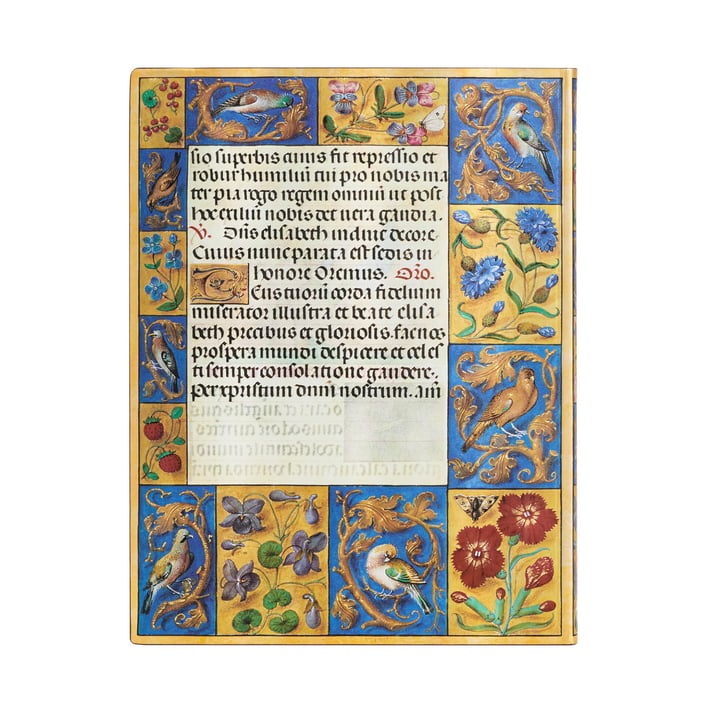 sio superbis cuius fit repressio et
robur humiliū tui pro nobis ma
ter pia rogo regem omniū ut post
hoc exiliū nobis det uera gaudia.
V. Diua elisabeth induit decore.
Cuius nunc parata est sedis in
honore Oremus. Oro.
Tuorū corda fidelium
miserator illustra et beate elisa
beth precibus et gloriosis. fac nos
prospera mundi despicere et celes
ti semper consolatione gaudere.
Per xpristum dnm̄ nostrum. am̄